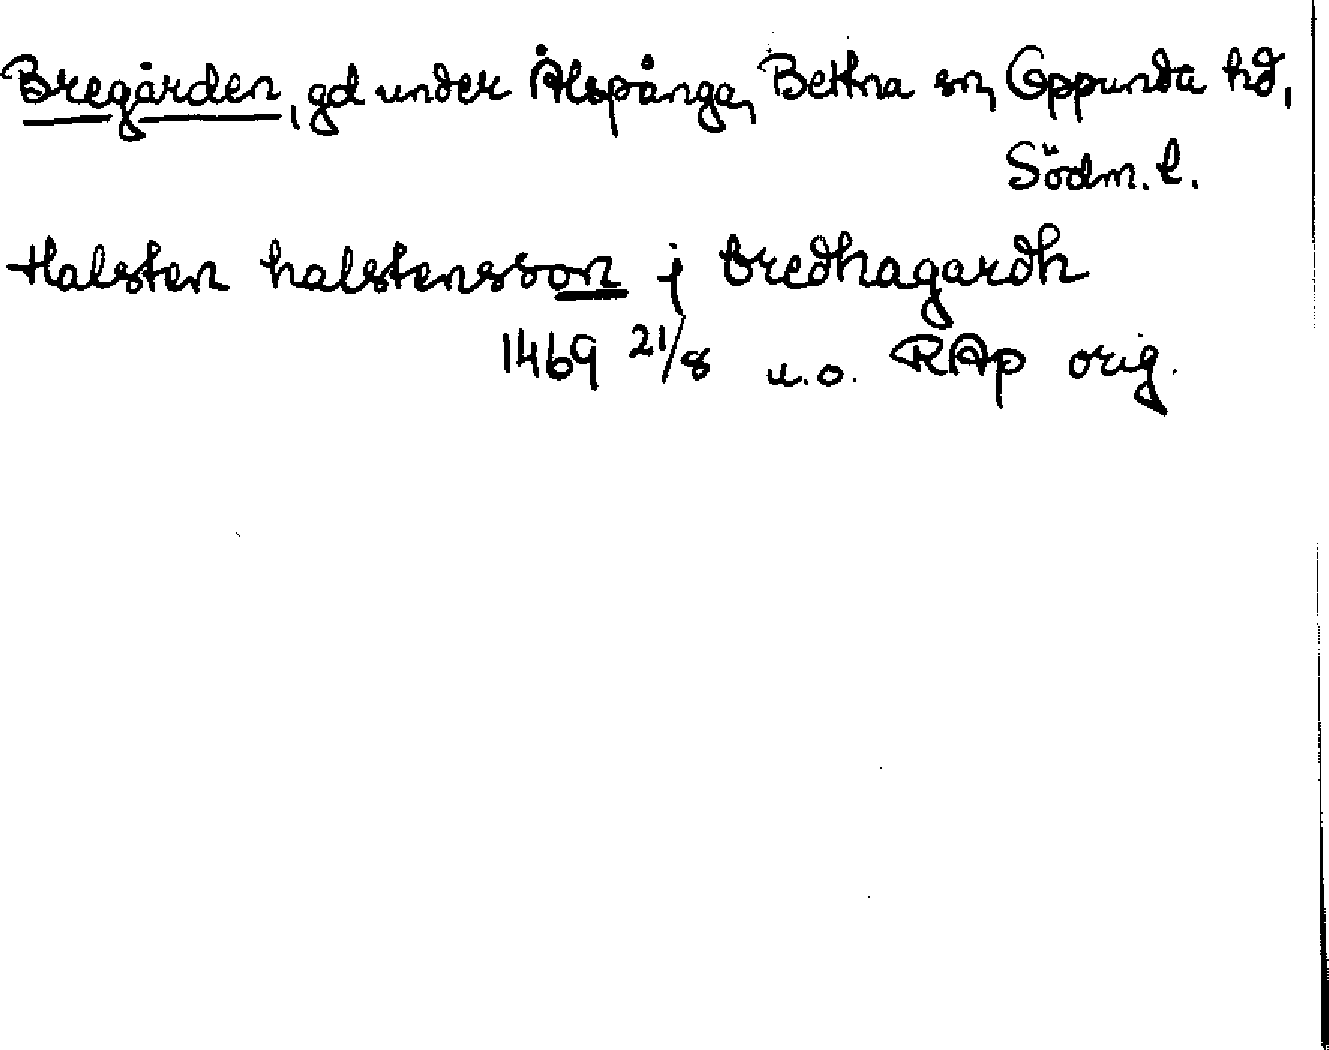 Bregården, gd under Ålspånga, Bettna sn, Oppunda hd,
Södm. l.
Halsten halstensson j bredhagardh
1469 21/8 u.o. RAp orig.